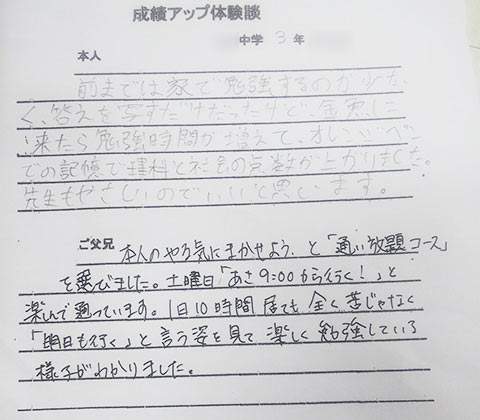 成績アップ体験談
中学 3 年
本人
前までは家で勉強するのが少な
く、答えを写すだけだったけど、金恵に
来たら勉強時間が増えて、オレンジペン
での記憶で理科と社会の点数が上がりました。
先生もやさしいのでいいと思います。
ご父兄
本人のやる気にまかせよう、と「通い放題コース」
を選びました。土曜日「あさ9:00から行く!」と
楽しんで通っています。1日10時間居ても全く苦じゃなく
「明日も行く」と言う姿を見て楽しく勉強している
様子がわかりました。